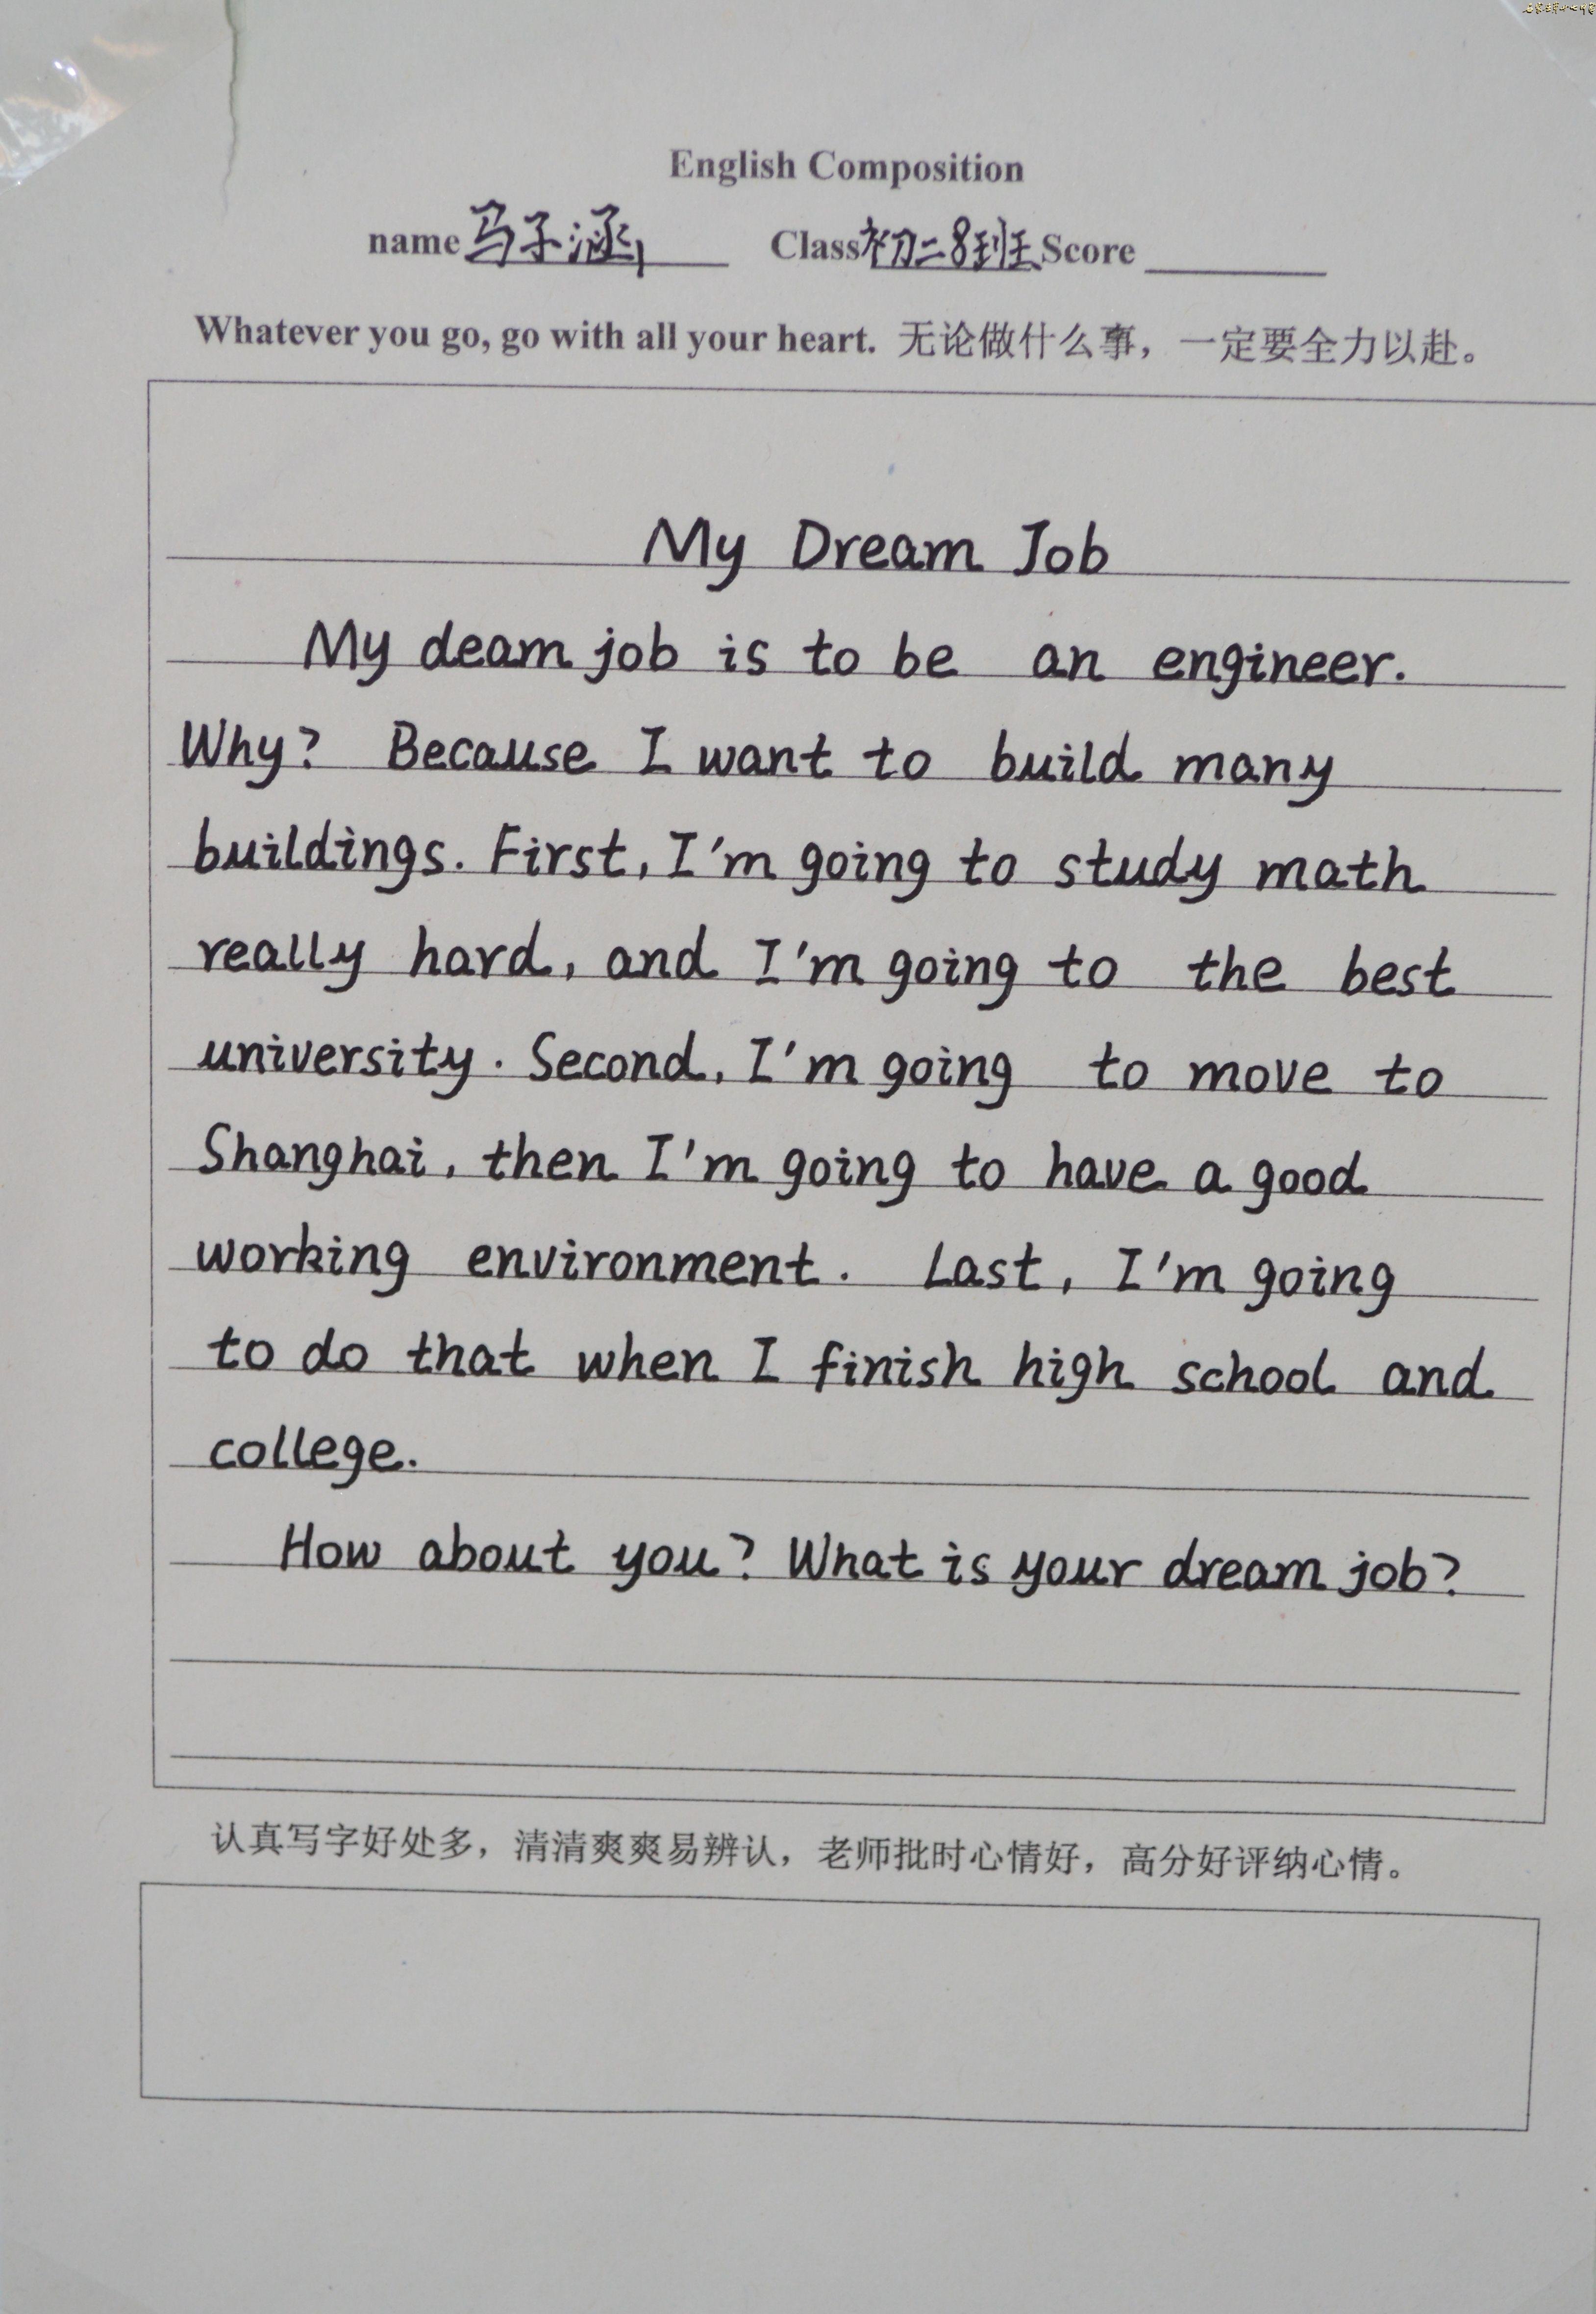 English Composition
name 马子涵 Class 初二8班 Score
Whatever you go, go with all your heart. 无论做什么事，一定要全力以赴。
My Dream Job
My deam job is to be an engineer.
Why? Because I want to build many
buildings. First, I'm going to study math
really hard, and I'm going to the best
university. Second, I'm going to move to
Shanghai, then I'm going to have a good
working environment. Last, I'm going
to do that when I finish high school and
college.
How about you? What is your dream job?
认真写字好处多，清清爽爽易辨认，老师批时心情好，高分好评纳心情。